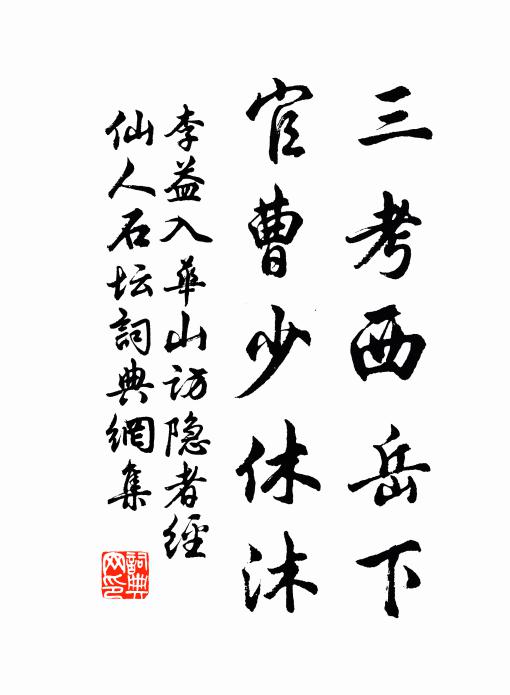 三考西岳下
官曹少休沐
李益入華山訪隐者經
仙人石坛詞典網集
詞典
网印